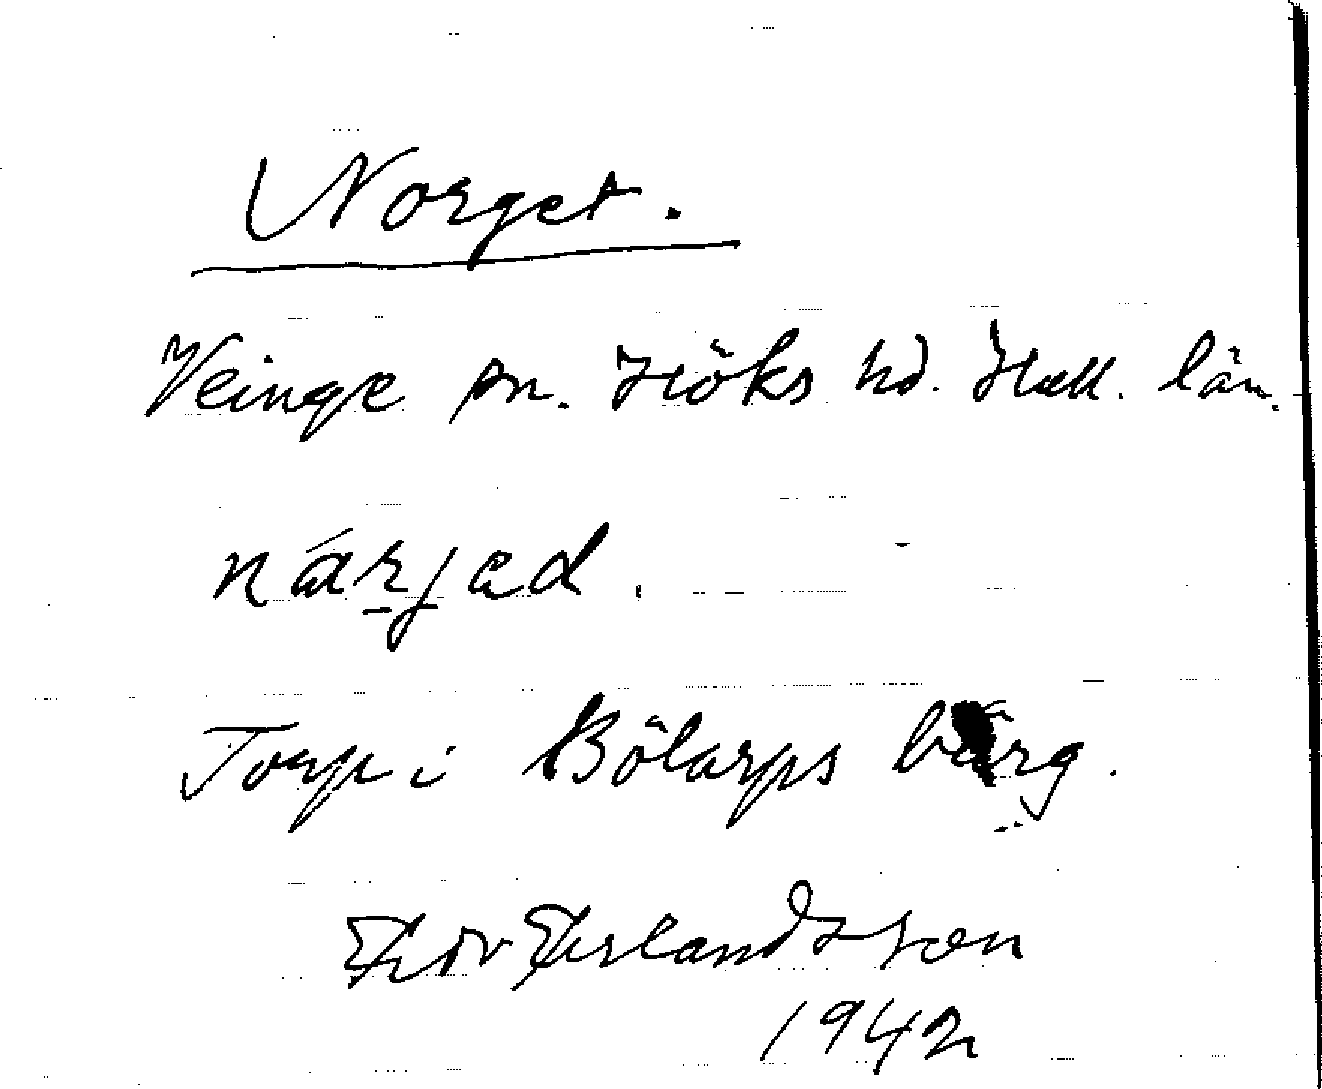 Norget.
Veinge sn. Höks hd. Hall. län.
nárjad.
Torp i Bölarps bärg.
Erlandsson
1942